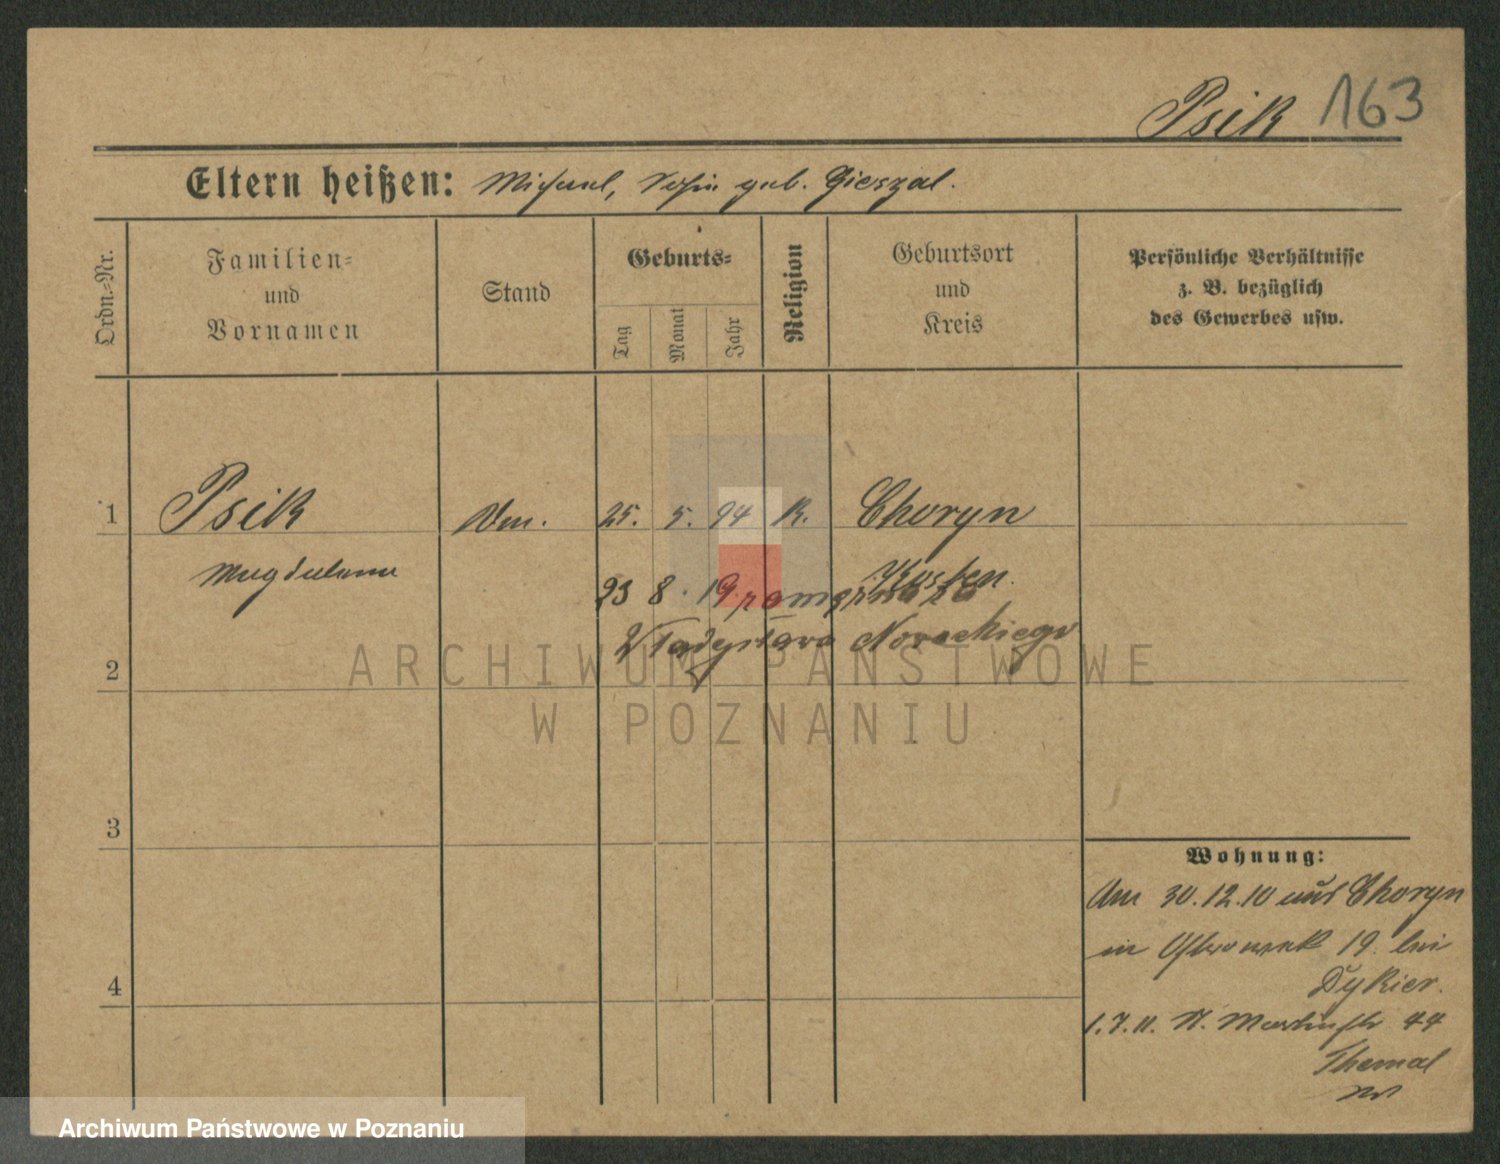 Psik 163
Eltern heißen: Michael, geb. Gieszal.
Ordn.-Nr.
Familien- und Vornamen
Stand
Geburts-
Tag
Monat
Jahr
Religion
Geburtsort und Kreis
Persönliche Verhältnisse
z. B. bezüglich
des Gewerbes usw.
1 Psik 25. 5. 94 K. Choryn
Magdalena Kosten.
23 8. 19. zamężna za
Władysława Norackiego
2
3
4
Wohnung:
Am 30.12.10 aus Choryn
in Ostrowek 19. bei
Dykier.
1.7.11. St. Martinstr 44
Themal
ARCHIWUM PAŃSTWOWE
W POZNANIU
Archiwum Państwowe w Poznaniu